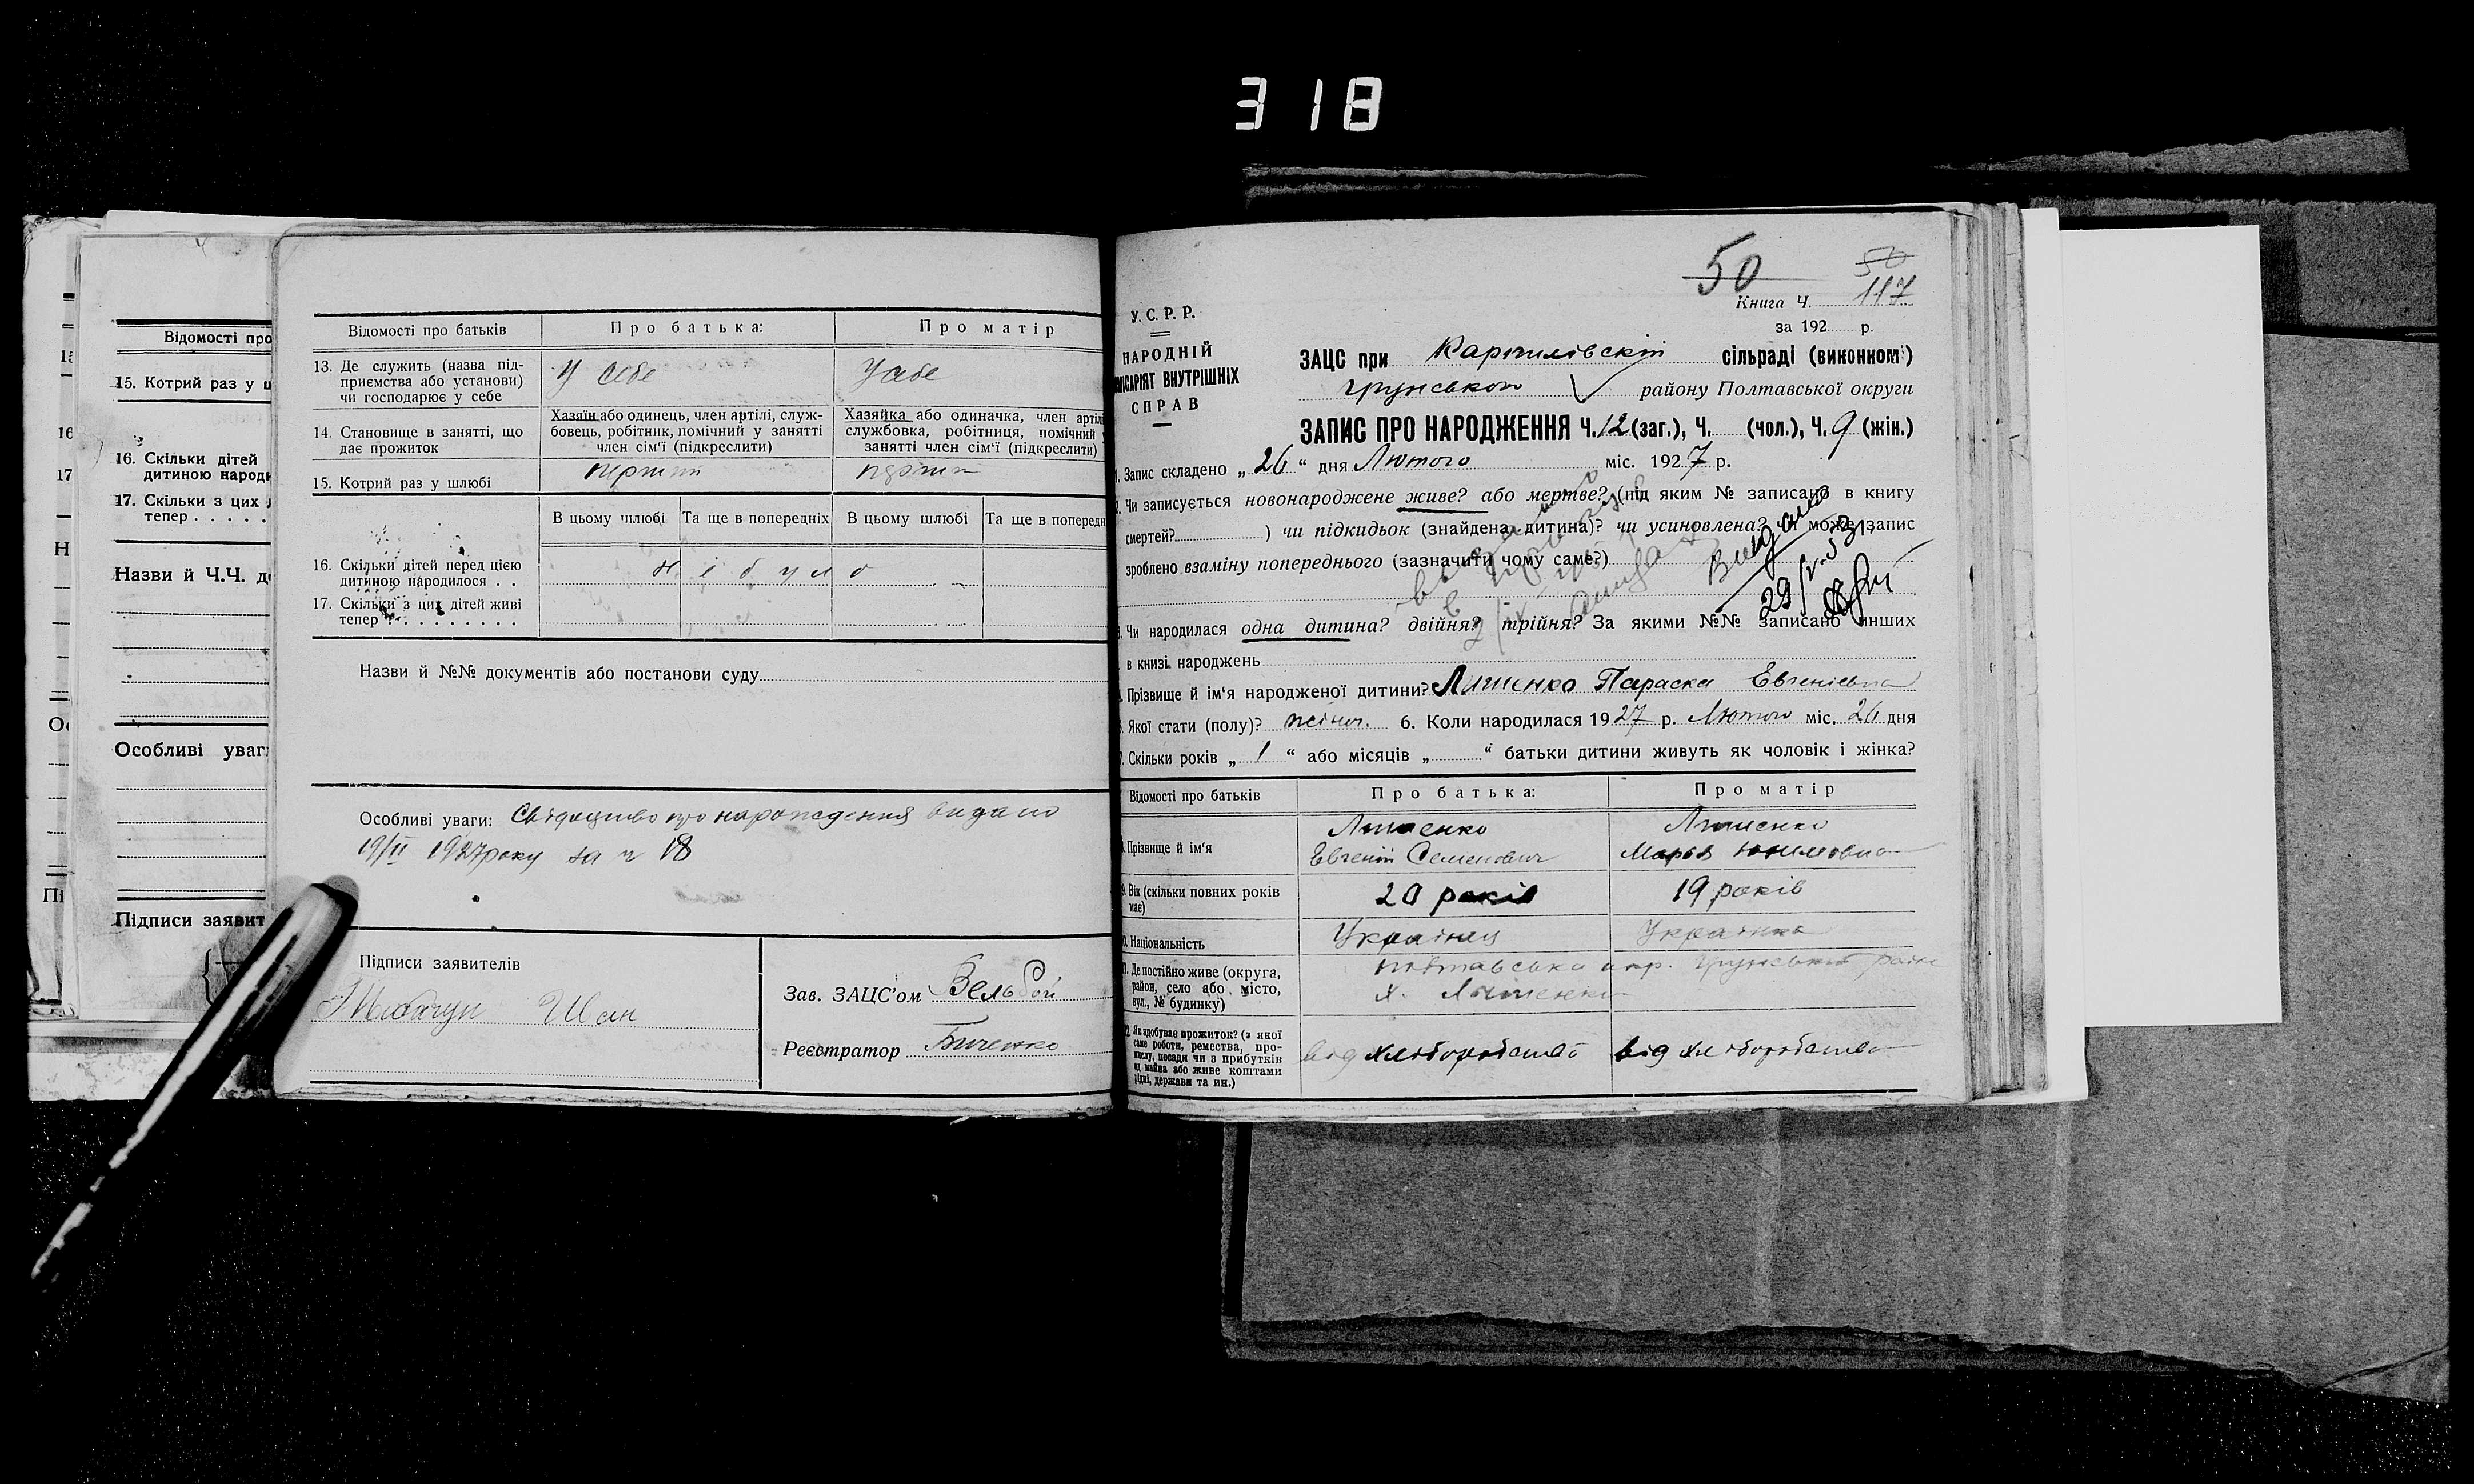 318
15
16
17
Н
Ос
Пі
Відомості про
15. Котрий раз у ш
16. Скільки дітей
дитиною народи
17. Скільки з цих
тепер . . . . .
Назви й Ч.Ч. д
Особливі уваг
Підписи заявит
Відомості про батьків
Про батька:
Про матір
13. Де служить (назва під-
приємства або установи)
чи господарює у себе
У себе
У себе
14. Становище в занятті, що
дає прожиток
Хазяїн або одинець, член артілі, служ-
бовець, робітник, помічний у занятті
член сім'ї (підкреслити)
Хазяйка або одиначка, член артілі
службовка, робітниця, помічний у
занятті член сім'ї (підкреслити)
15. Котрий раз у шлюбі
перший
перший
В цьому шлюбі
Та ще в попередніх
В цьому шлюбі
Та ще в попередн
16. Скільки дітей перед цією
дитиною народилося . .
не було
17. Скільки з цих дітей живі
тепер . . . . . . . . .
Назви й №№ документів або постанови суду
Особливі уваги:
видано
19/II 1927 року за ч 18
Підписи заявителів
Зав. ЗАЦС'ом
Реєстратор Биченко
50
50
Книга Ч. 117
за 192 р.
У. С. Р. Р.
НАРОДНІЙ
МІСАРІЯТ ВНУТРІШНІХ
СПРАВ
ЗАЦС при сільраді (виконкомі)
Грунського району Полтавської округи
ЗАПИС ПРО НАРОДЖЕННЯ Ч. 12 (заг.), Ч. (чол.), Ч. 9 (жін.)
1. Запис складено „26“ дня Лютого міс. 1927 р.
2. Чи записується новонароджене живе? або мертве? (під яким № записано в книгу
смертей? ) чи підкидьок (знайдена дитина)? чи усиновлена? чи може запис
зроблено взаміну попереднього (зазначити чому саме?)
3. Чи народилася одна дитина? двійня? трійня? За якими №№ записано инших
в книзі народжень
4. Прізвище й ім'я народженої дитини? Литенко Параска Евгеніевна
5. Якої стати (полу)? жіноч. 6. Коли народилася 1927 р. Лютого міс. 26 дня
7. Скільки років „1“ або місяців „ “ батьки дитини живуть як чоловік і жінка?
Відомості про батьків
Про батька:
Про матір
8. Прізвище й ім'я
Литенко
Евгеній Семенович
Литенко
Марья
9. Вік (скільки повних років
має)
20 років
19 років
10. Національність
Українец
Українка
11. Де постійно живе (округа,
район, село або місто,
вул., № будинку)
Полтавська окр. Грунський район
х. Литенки
12. Як здобуває прожиток? (з якої
саме роботи, ремества, про-
мислу, посади чи з прибутків
од майна або живе коштами
рідні, держави та ин.)
від хліборобства
від хліборобства